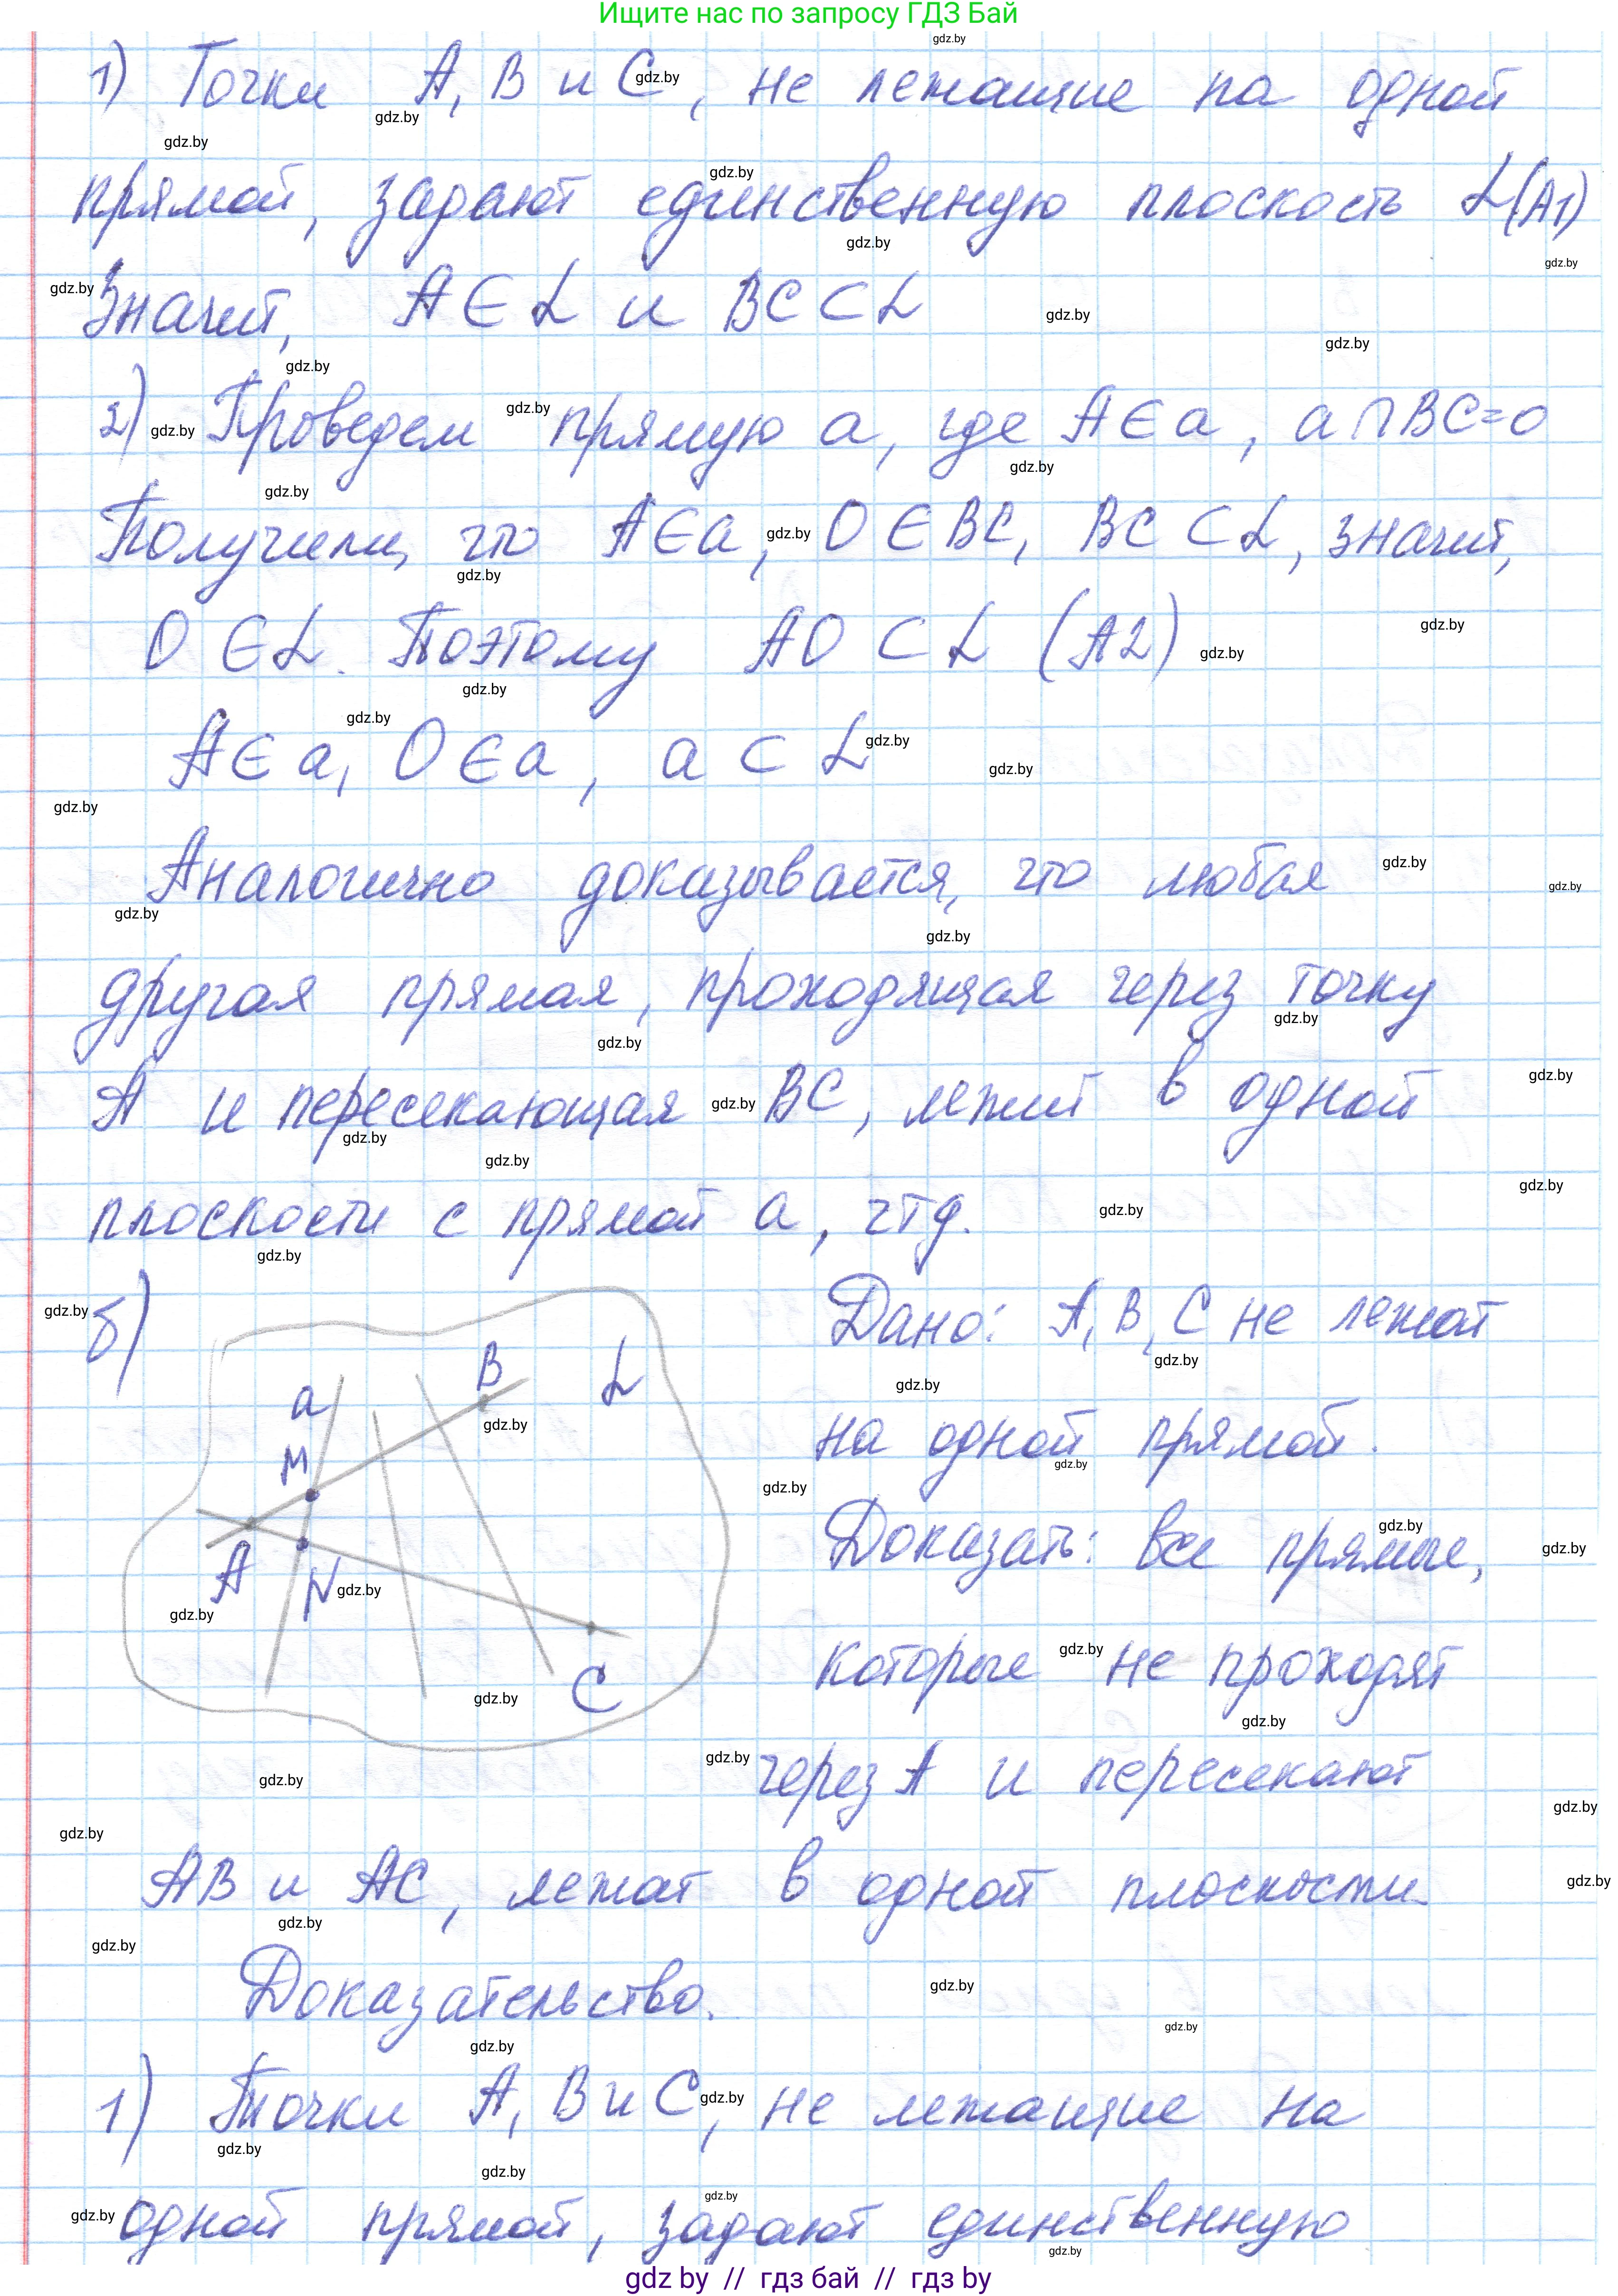 Ищите нас по запросу ГДЗ Бай
1) Точки A, B и C, не лежащие на одной
прямой, задают единственную плоскость α(A1)
Значит, A∈α и BC⊂α
2) Проведем прямую a, где A∈a, a∩BC=O
Получили, что A∈a, O∈BC, BC⊂α, значит,
O∈α. Поэтому AO⊂α (A2)
A∈a, O∈a, a⊂α
Аналогично доказывается, что любая
другая прямая, проходящая через точку
A и пересекающая BC, лежит в одной
плоскости с прямой a, чтд.
б)
a
B
α
M
A
N
C
Дано: A, B, C не лежат
на одной прямой.
Доказать: все прямые,
которые не проходят
через A и пересекают
AB и AC, лежат в одной плоскости.
Доказательство.
1) Точки A, B и C, не лежащие на
одной прямой, задают единственную
gdz by // гдз бай // гдз by